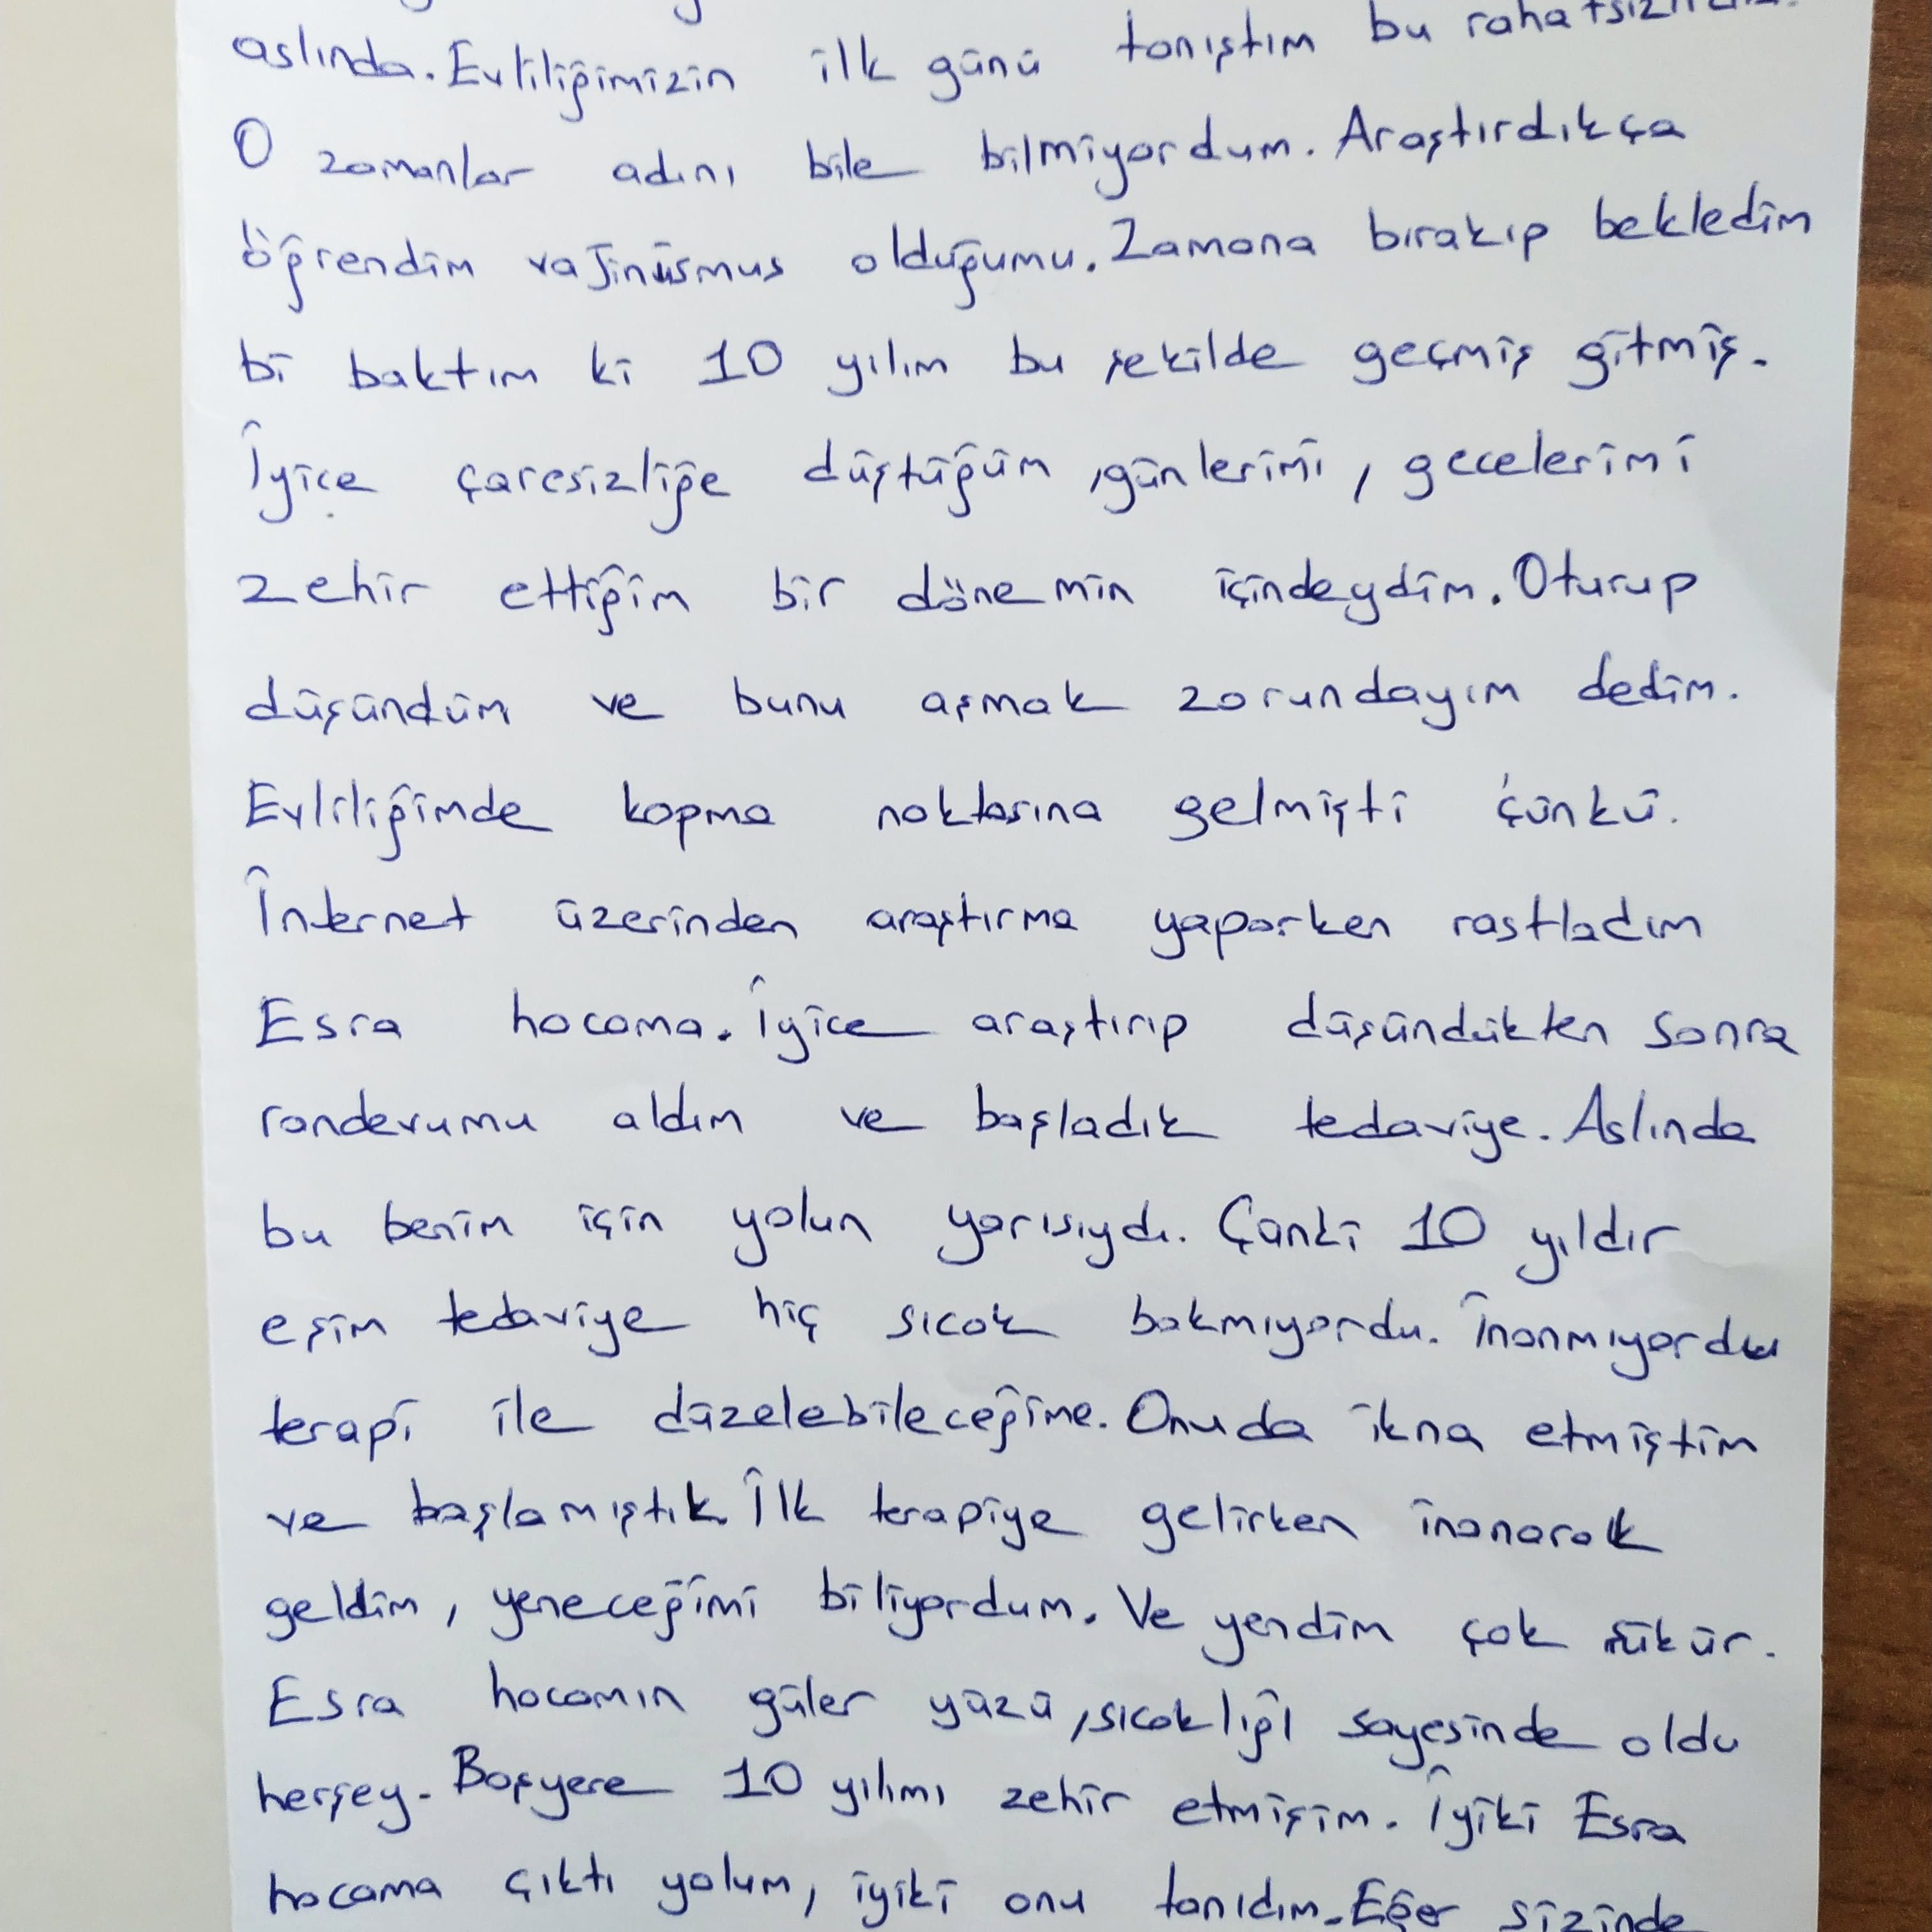 aslında. Evliliğimizin ilk günü tanıştım bu
O zamanlar adını bile bilmiyordum. Araştırdıkça
öğrendim vajinüsmus olduğumu. Zamana bırakıp bekledim
bi baktım ki 10 yılım bu şekilde geçmiş gitmiş.
İyice çaresizliğe düştüğüm, günlerimi, gecelerimi
zehir ettiğim bir dönemin içindeydim. Oturup
düşündüm ve bunu aşmak zorundayım dedim.
Evliliğimde kopma noktasına gelmişti çünkü.
İnternet üzerinden araştırma yaparken rastladım
Esra hocama. İyice araştırıp düşündükten sonra
randevumu aldım ve başladık tedaviye. Aslında
bu benim için yolun yarısıydı. Çünki 10 yıldır
eşim tedaviye hiç sıcak bakmıyordu. İnanmıyordu
terapi ile düzelebileceğine. Onuda ikna etmiştim
ve başlamıştık. İlk terapiye gelirken inanarak
geldim, yeneceğimi biliyordum. Ve yendim çok şükür.
Esra hocamın güler yüzü, sıcaklığı sayesinde oldu
herşey. Boşyere 10 yılımı zehir etmişim. İyiki Esra
hocama çıktı yolum, iyiki onu tanıdım. Eğer sizinde